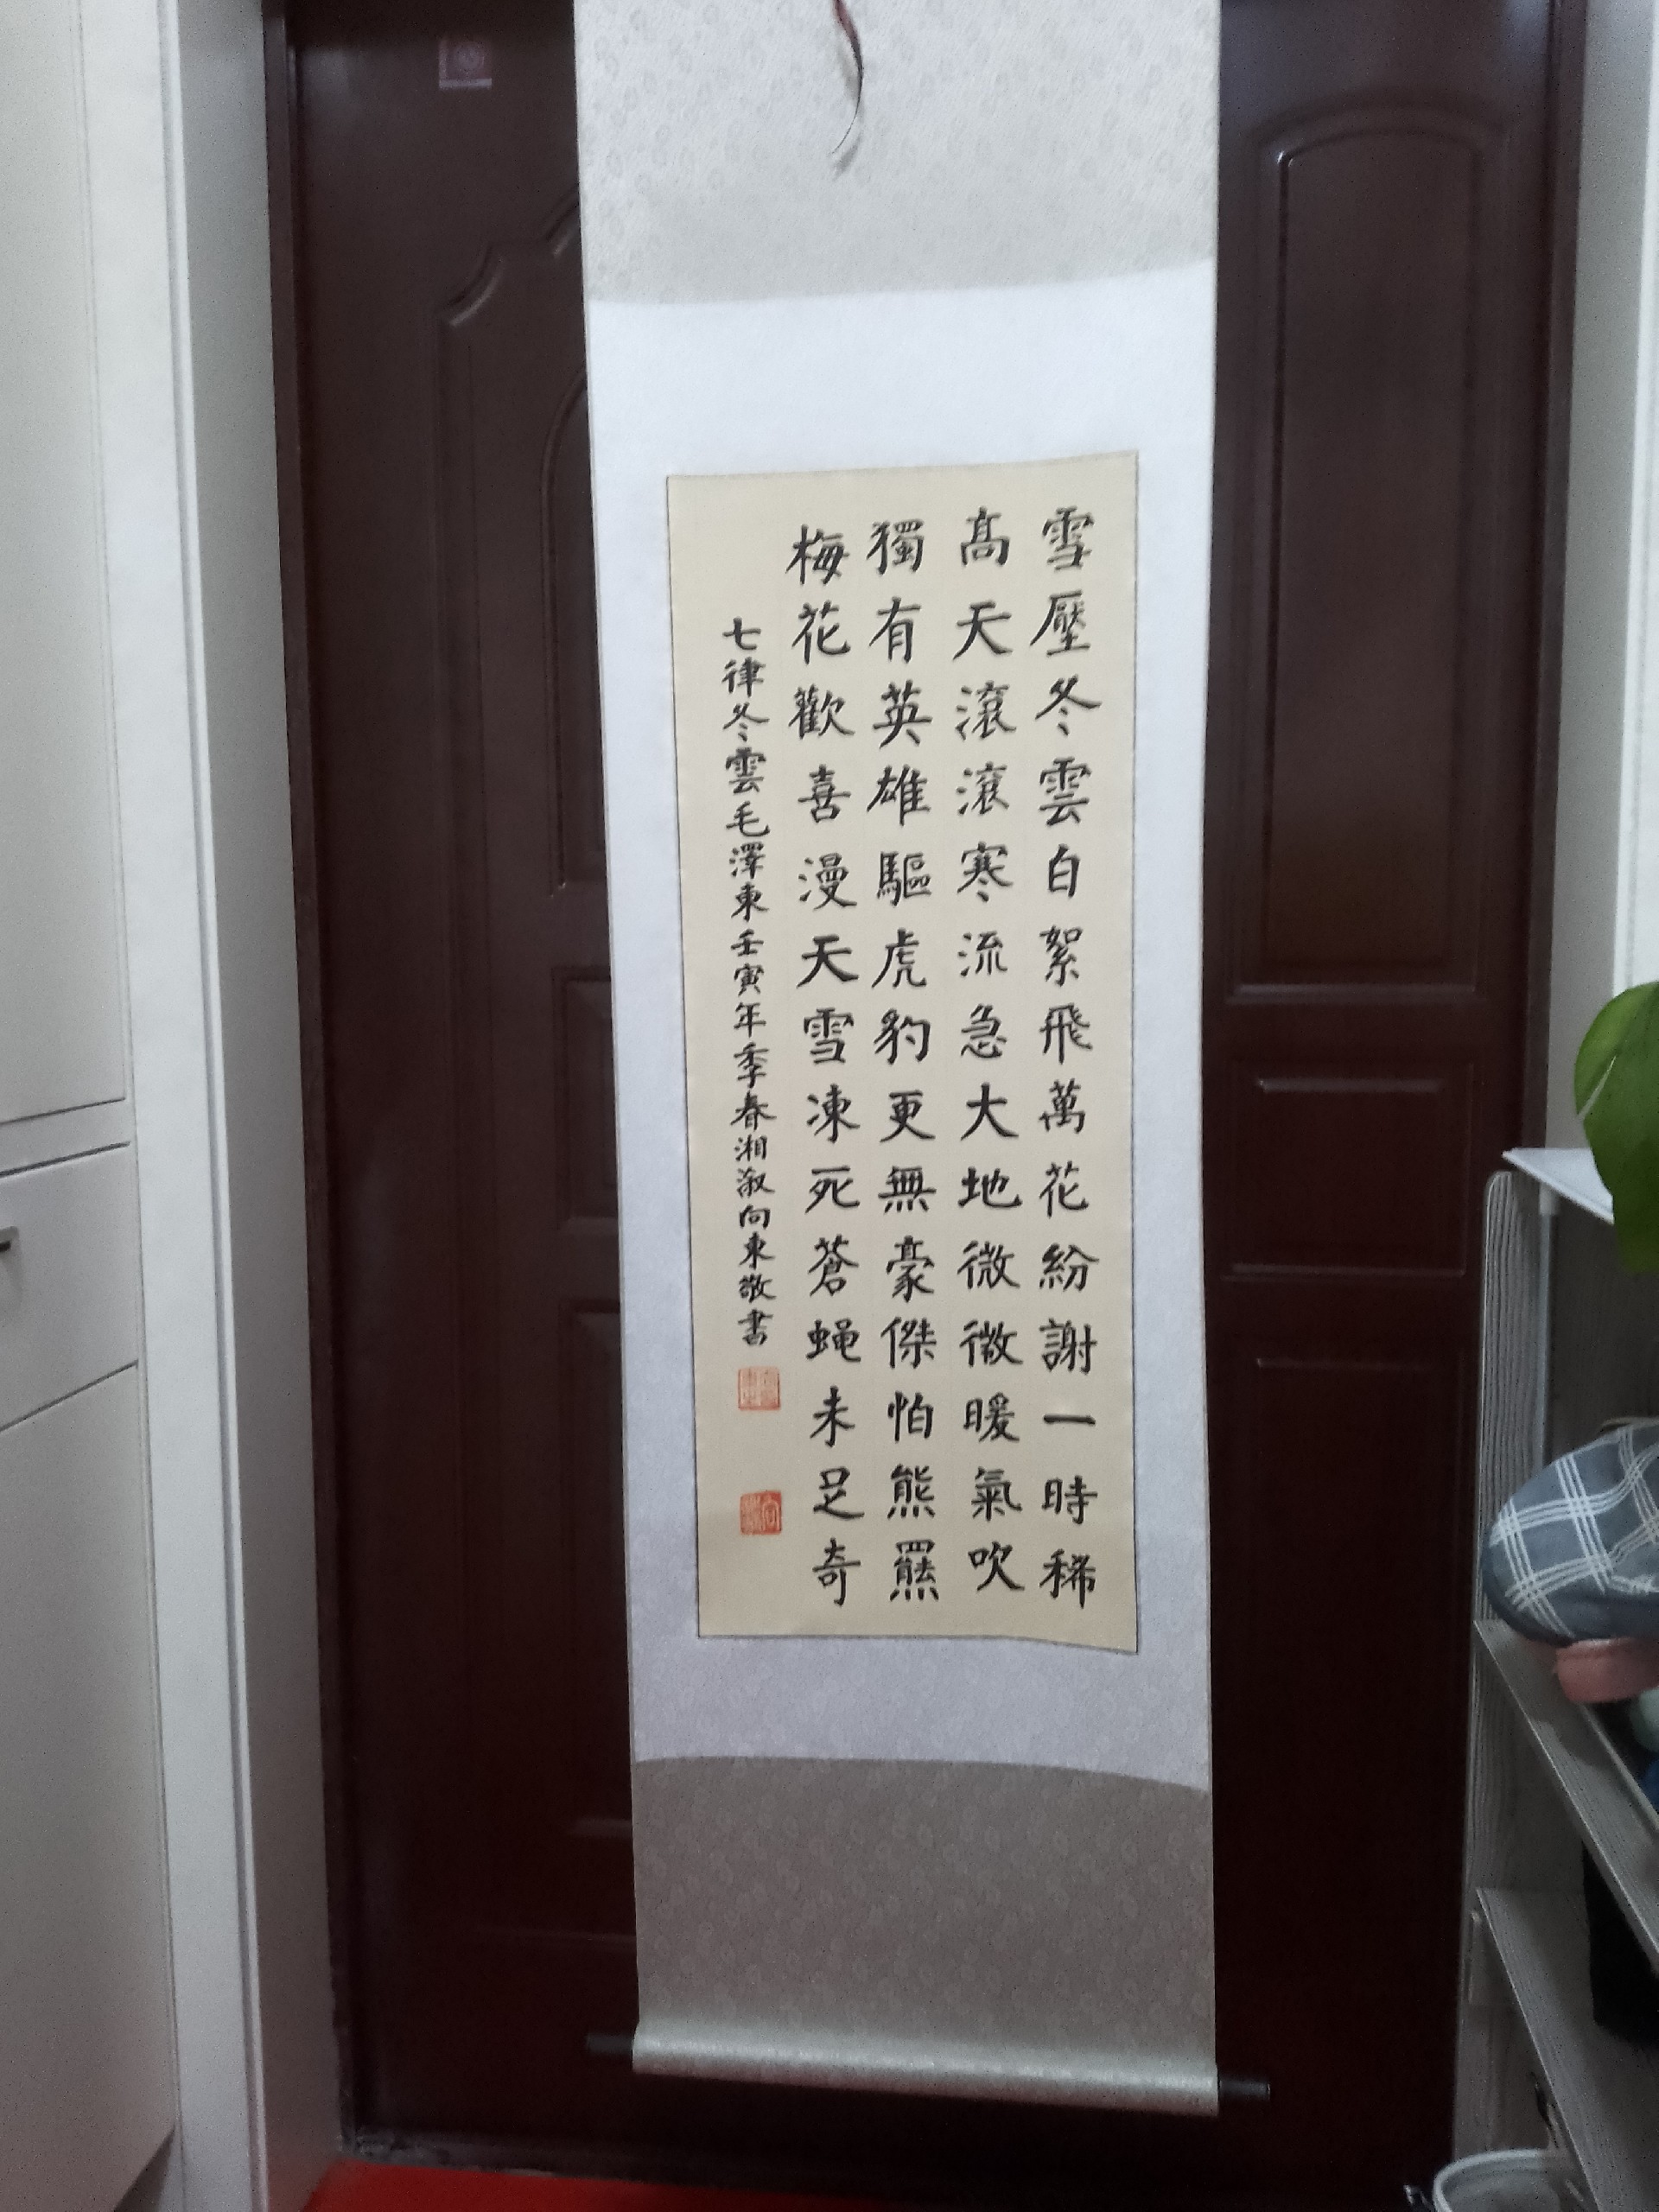 雪壓冬雲白絮飛萬花紛謝一時稀
高天滾滾寒流急大地微微暖氣吹
獨有英雄驅虎豹更無豪傑怕熊羆
梅花歡喜漫天雪凍死蒼蠅未足奇
七律冬雲毛澤東壬寅年季春湘漵向東敬書